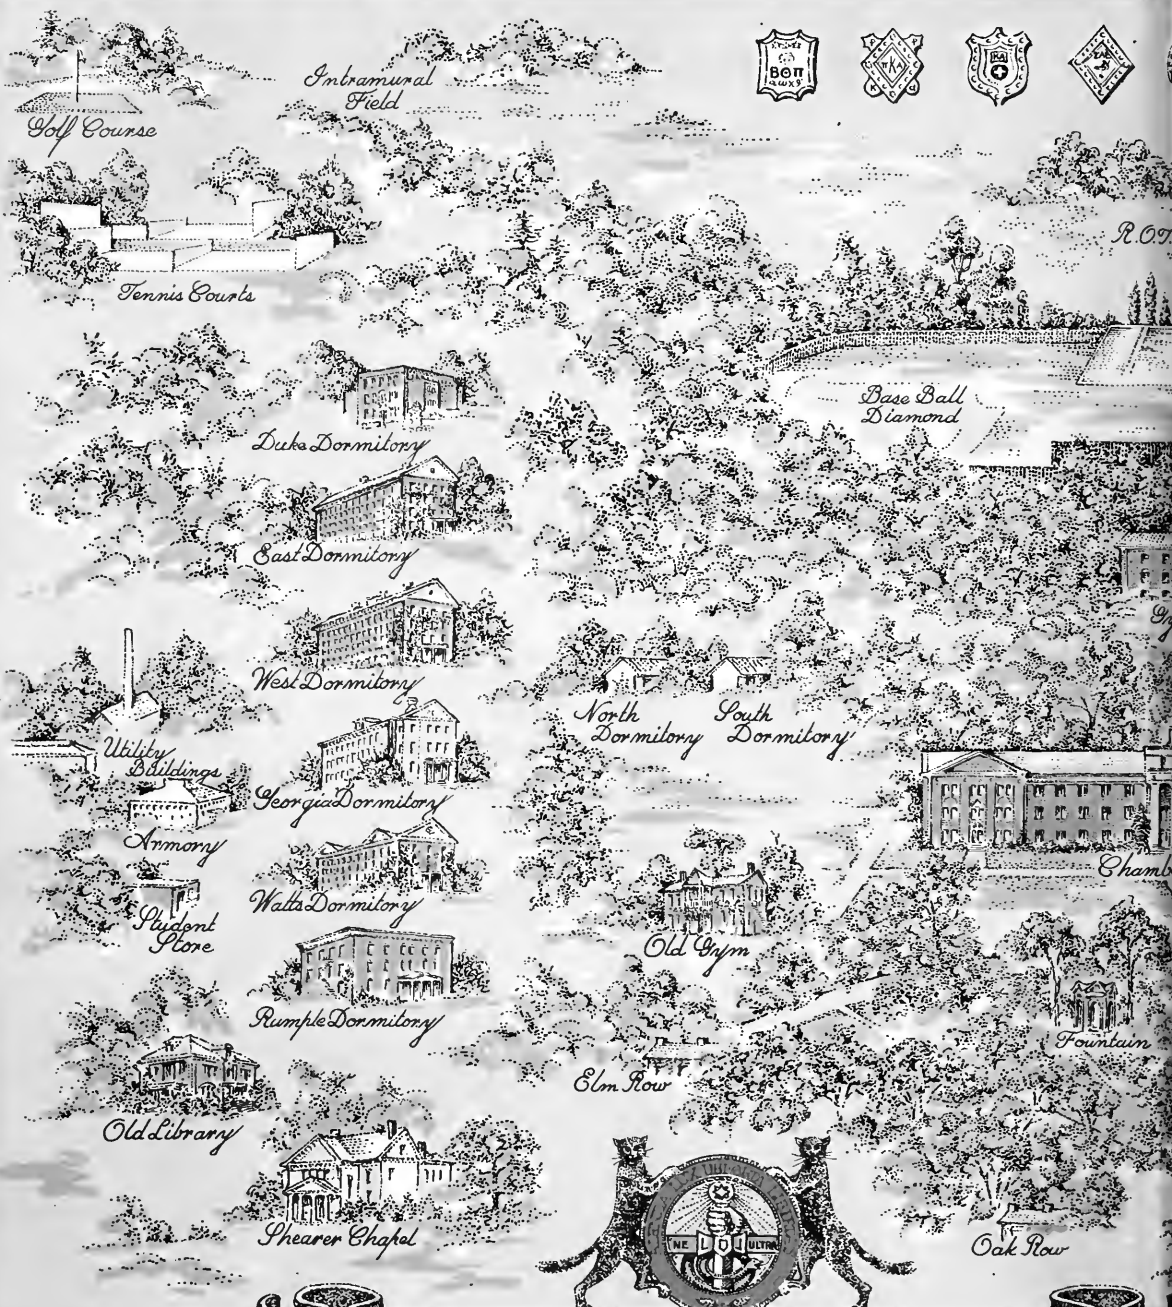 Intramural
Field
ΒΘΠ
αωχδ
ΠΚΑ
Golf Course
R.O.T
Tennis Courts
Base Ball
Diamond
Duke Dormitory
East Dormitory
West Dormitory
North
Dormitory
South
Dormitory
Utility
Buildings
Georgia Dormitory
Armory
Chamb
Watts Dormitory
Student
Store
Old Gym
Rumple Dormitory
Fountain
Elm Row
Old Library
Shearer Chapel
NE
ULTRA
Oak Row